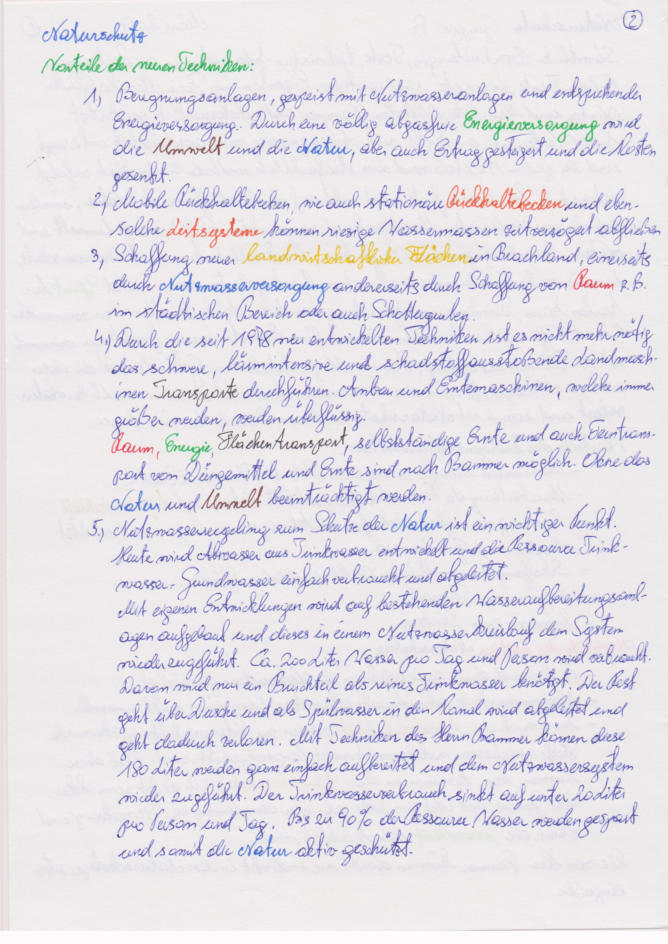 2
Naturschutz
Vorteile der neuen Techniken:
1, Beregnungsanlagen, gespeist mit Nutzwasseranlagen und entsprechender
Energieversorgung. Durch eine völlig abgasfreie Energieversorgung wird
die Umwelt und die Natur, aber auch Ertrag gesteigert und die Kosten
gesenkt.
2, Mobile Rückhaltebecken, wie auch stationäre Rückhaltebecken und eben-
solche Leitsysteme, können riesige Wassermassen zeitverzögert abfließen
3, Schaffung neuer landwirtschaftlicher Flächen, in Brachland, einerseits
durch Nutzwasserversorgung andererseits durch Schaffung von Raum z.B.
im städtischen Bereich oder auch Schottergruben.
4.) Durch die seit 1998 neu entwickelten Techniken ist es nicht mehr nötig
das schwere, lärmintensive und schadstoffausstoßende Landmasch-
inen Transporte durchführen. Anbau und Erntemaschinen, welche immer
größer werden, werden überflüssig.
Raum, Energie, Flächentransport, selbstständige Ernte und auch Ferntrans-
port von Düngemittel und Ernte sind nach Brammer möglich. Ohne das
Natur und Umwelt beeinträchtigt werden.
5.) Nutzwasserregelung zum Schutze der Natur ist ein wichtiger Punkt.
Heute wird Abwasser aus Trinkwasser entwickelt und die Ressource Trink-
wasser - Grundwasser einfach verbraucht und abgeleitet.
Mit eigenen Entwicklungen wird auf bestehenden Wasseraufbereitungsanl-
agen aufgebaut und dieses in einem Nutzwasserkreislauf dem System
wieder zugeführt. Ca. 200 Liter Wasser pro Tag und Person wird verbraucht.
Davon wird nur ein Bruchteil als reines Trinkwasser benötigt. Der Rest
geht über Dusche und als Spülwasser in den Kanal wird abgeleitet und
geht dadurch verloren. Mit Techniken des Herrn Brammer können diese
180 Liter werden ganz einfach aufbereitet und dem Nutzwassersystem
wieder zugeführt. Der Trinkwasserverbrauch sinkt auf unter 20 Liter
pro Person und Tag. Bis zu 90% der Ressource Wasser werden gespart
und somit die Natur aktiv geschützt.